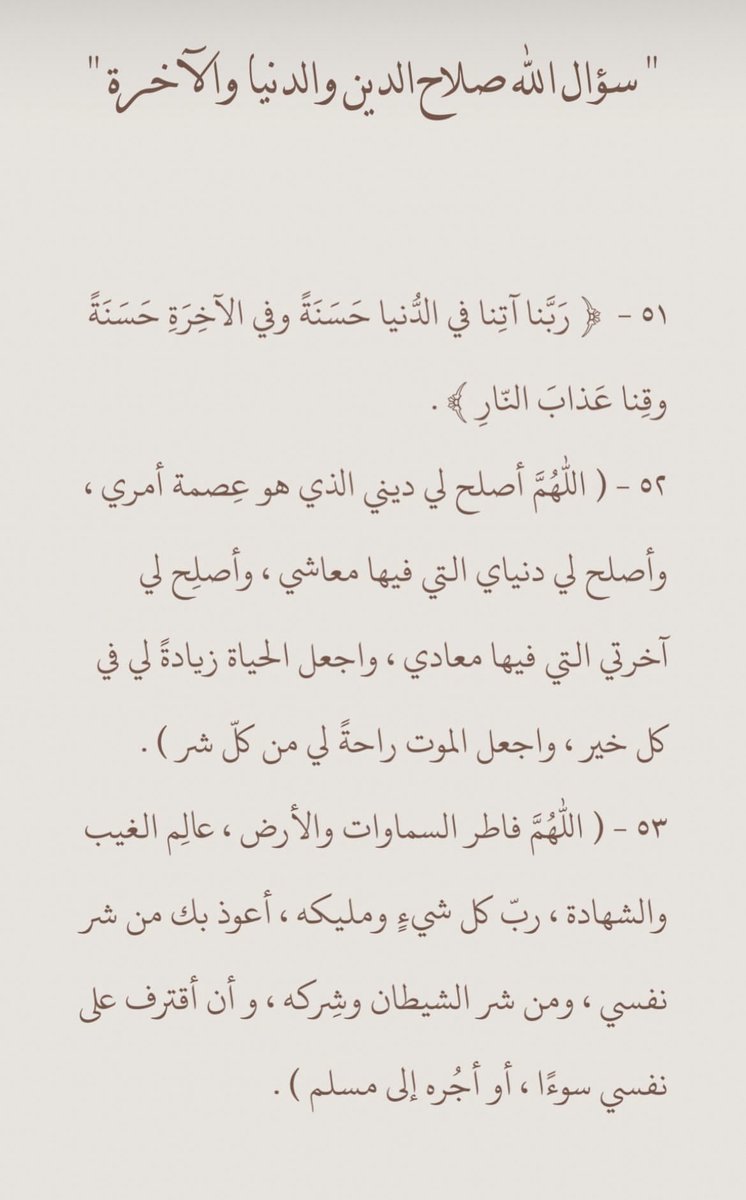 " سؤال الله صلاح الدين والدنيا والآخرة "
٥١ - ﴿ رَبَّنا آتِنا في الدُّنيا حَسَنَةً وفي الآخِرَةِ حَسَنَةً
وقِنا عَذابَ النّارِ ﴾ .
٥٢ - ( اللهُمَّ أصلح لي ديني الذي هو عِصمة أمري ،
وأصلح لي دنياي التي فيها معاشي ، وأصلِح لي
آخرتي التي فيها معادي ، واجعل الحياة زيادةً لي في
كل خير ، واجعل الموت راحةً لي من كلّ شر ) .
٥٣ - ( اللهُمَّ فاطر السماوات والأرض ، عالِم الغيب
والشهادة ، ربّ كل شيءٍ ومليكه ، أعوذ بك من شر
نفسي ، ومن شر الشيطان وشِركه ، و أن أقترف على
نفسي سوءًا ، أو أجُره إلى مسلم ) .